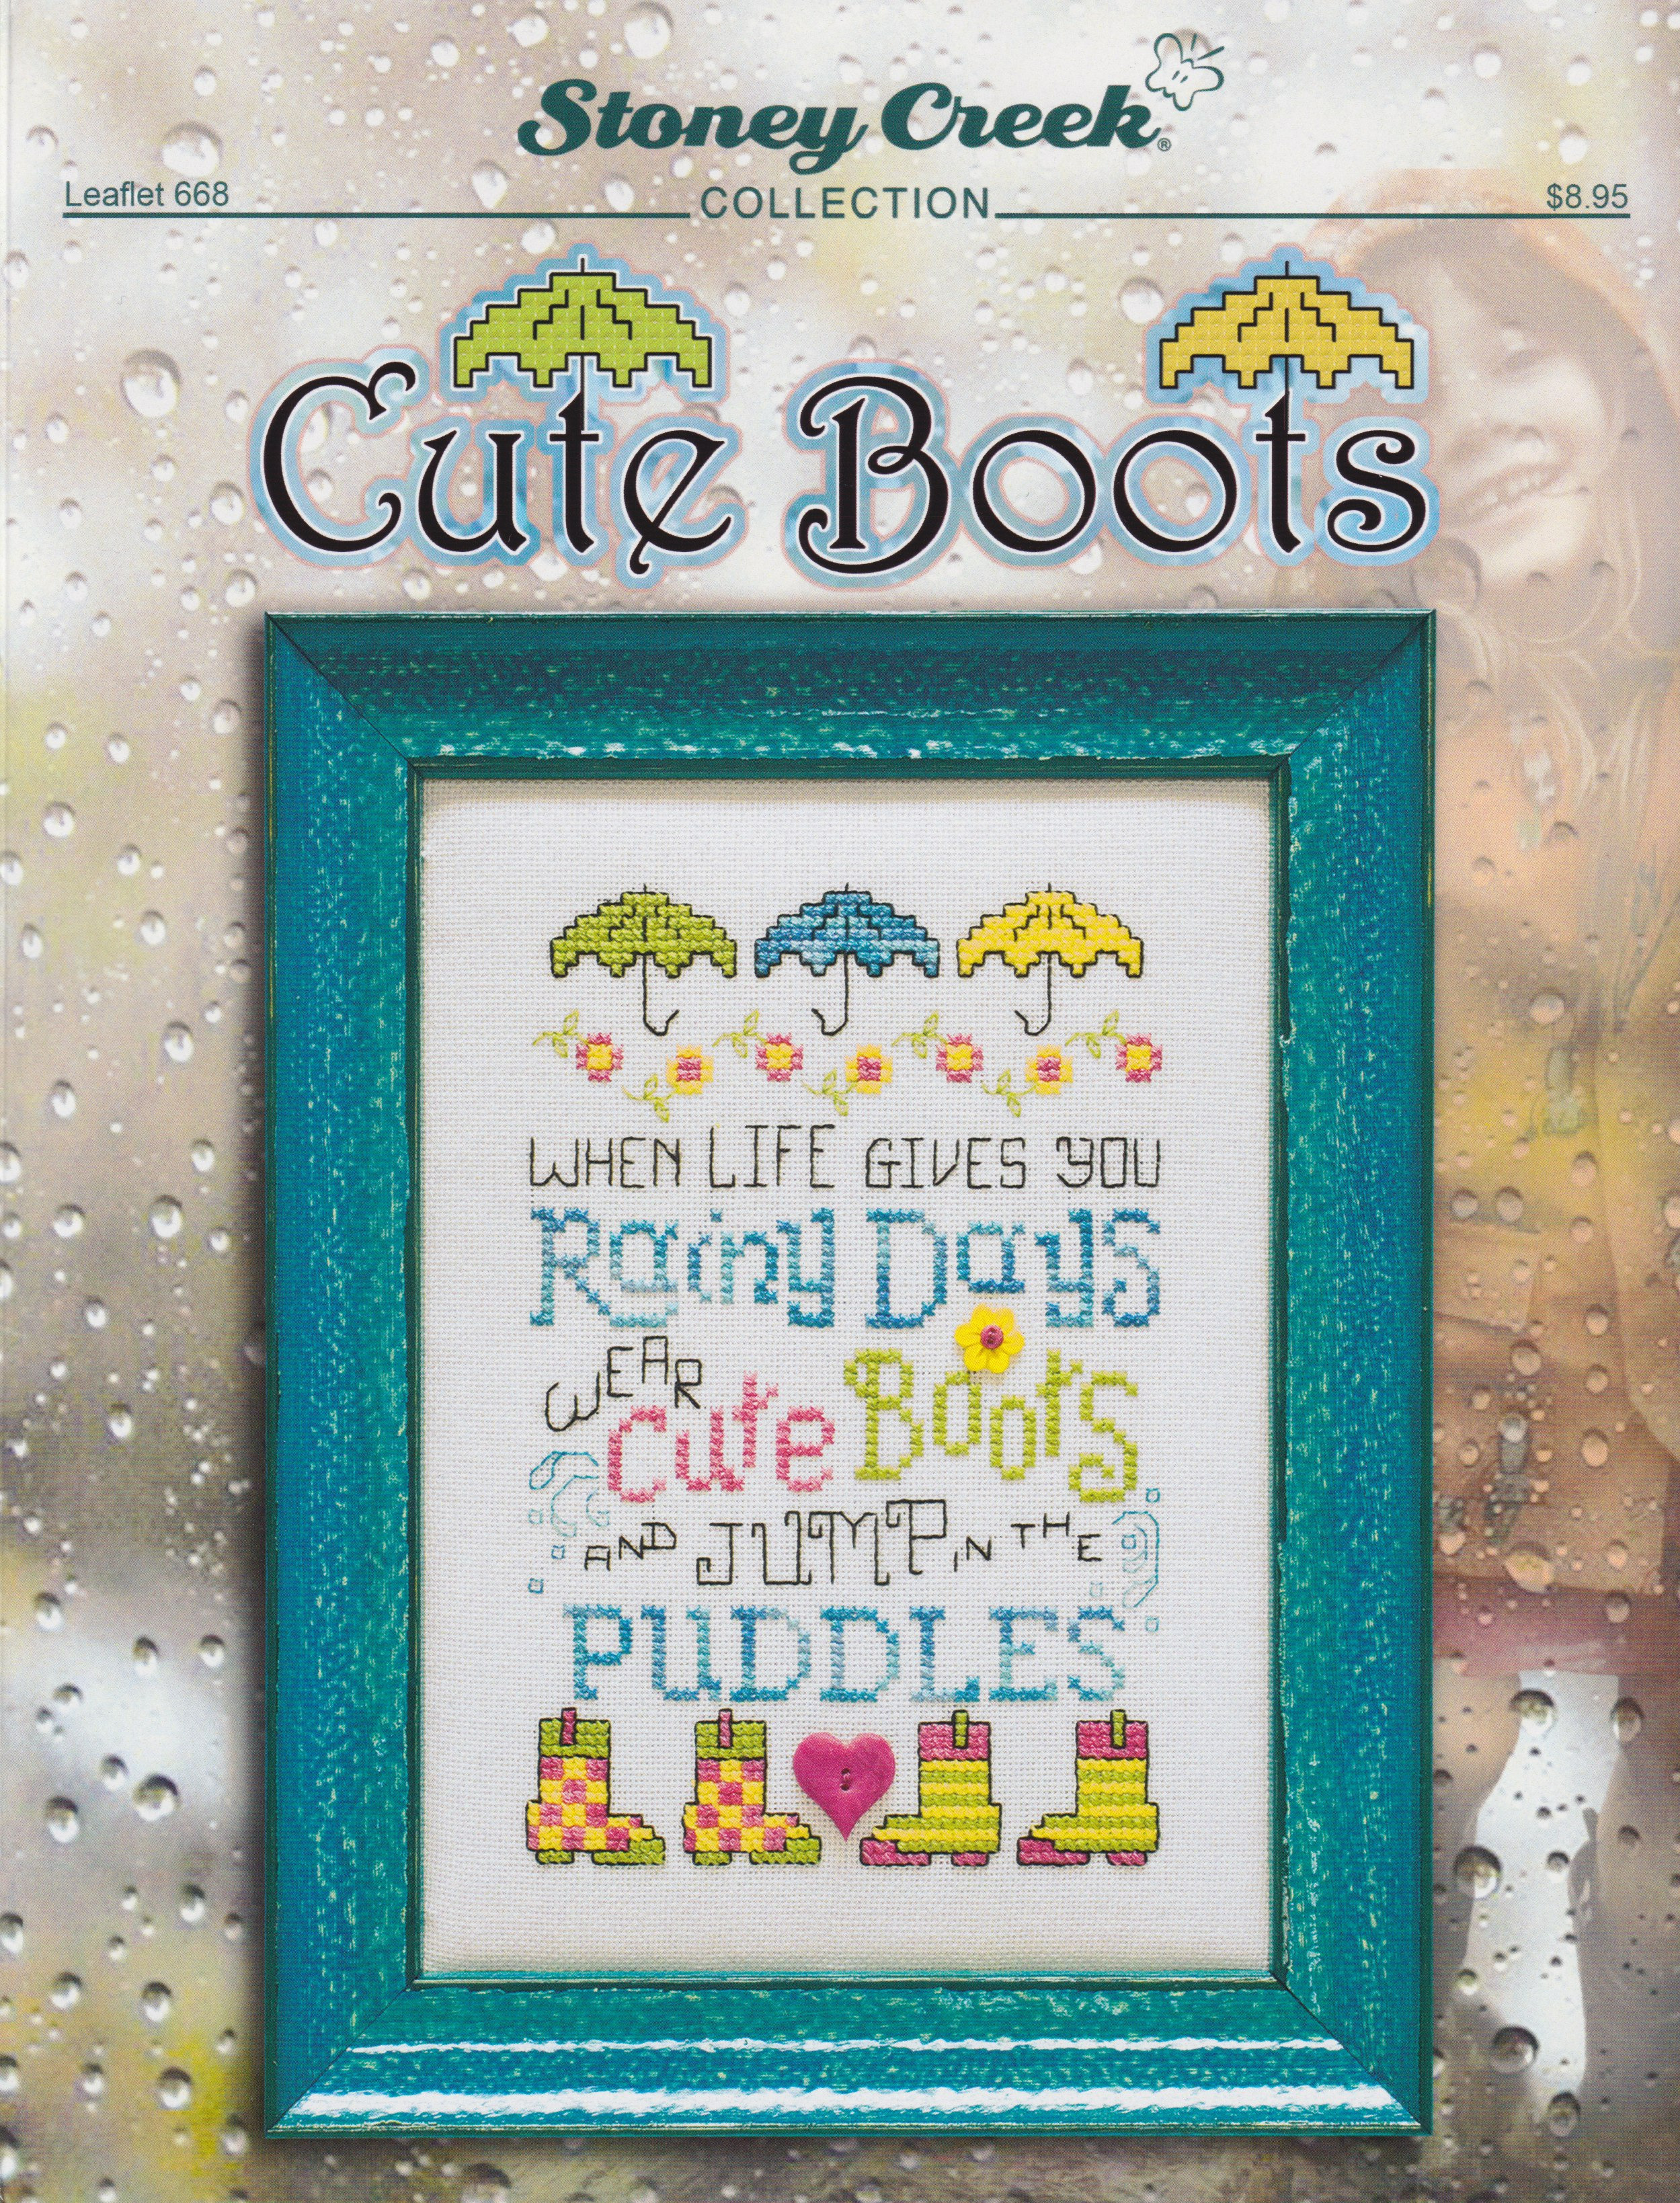 Stoney Creek®
COLLECTION
Leaflet 668
$8.95
Cute Boots
WHEN LIFE GIVES YOU
Rainy Days
WEAR
Cute Boots
AND JUMP IN THE
PUDDLES